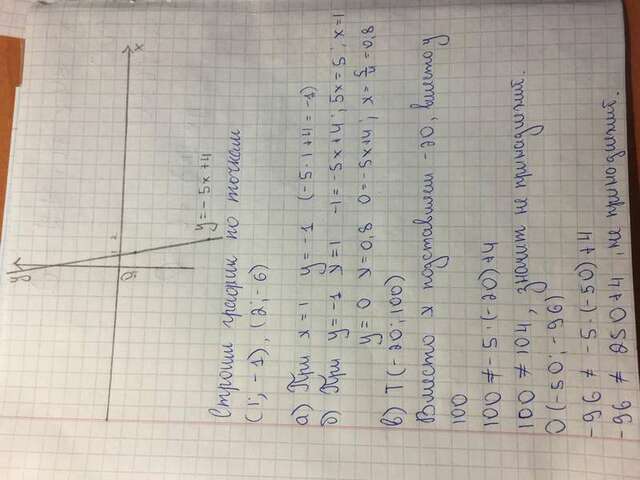 y
x
0
1
y=-5x+4
Строим график по точкам
(1; -1), (2; -6)
а) При x=1 y=-1 (-5·1+4=-1)
б) При y=-1 x=1 -1=-5x+4; 5x=5; x=1
y=0 x=0,8 0=-5x+4; x=4/5=0,8
в) T(-20; 100)
Вместо x подставляем -20, вместо y
100
100 ≠ -5·(-20)+4
100 ≠ 104, значит не принадлежит.
O(-50; -96)
-96 ≠ -5·(-50)+4
-96 ≠ 250+4, не принадлежит.